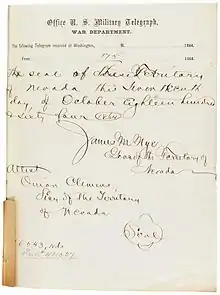 Office U. S. Military Telegraph,
WAR DEPARTMENT.
The following Telegram received at Washington, M. 1864.
From 175 1864.
The seal of the Territory
of Nevada this
day of October Eighteen hundred
& Sixty four
James W. Nye
Gov of the Territory of
Nevada
Attest
Orion Clemens
Secy of the Territory
of Nevada
Seal